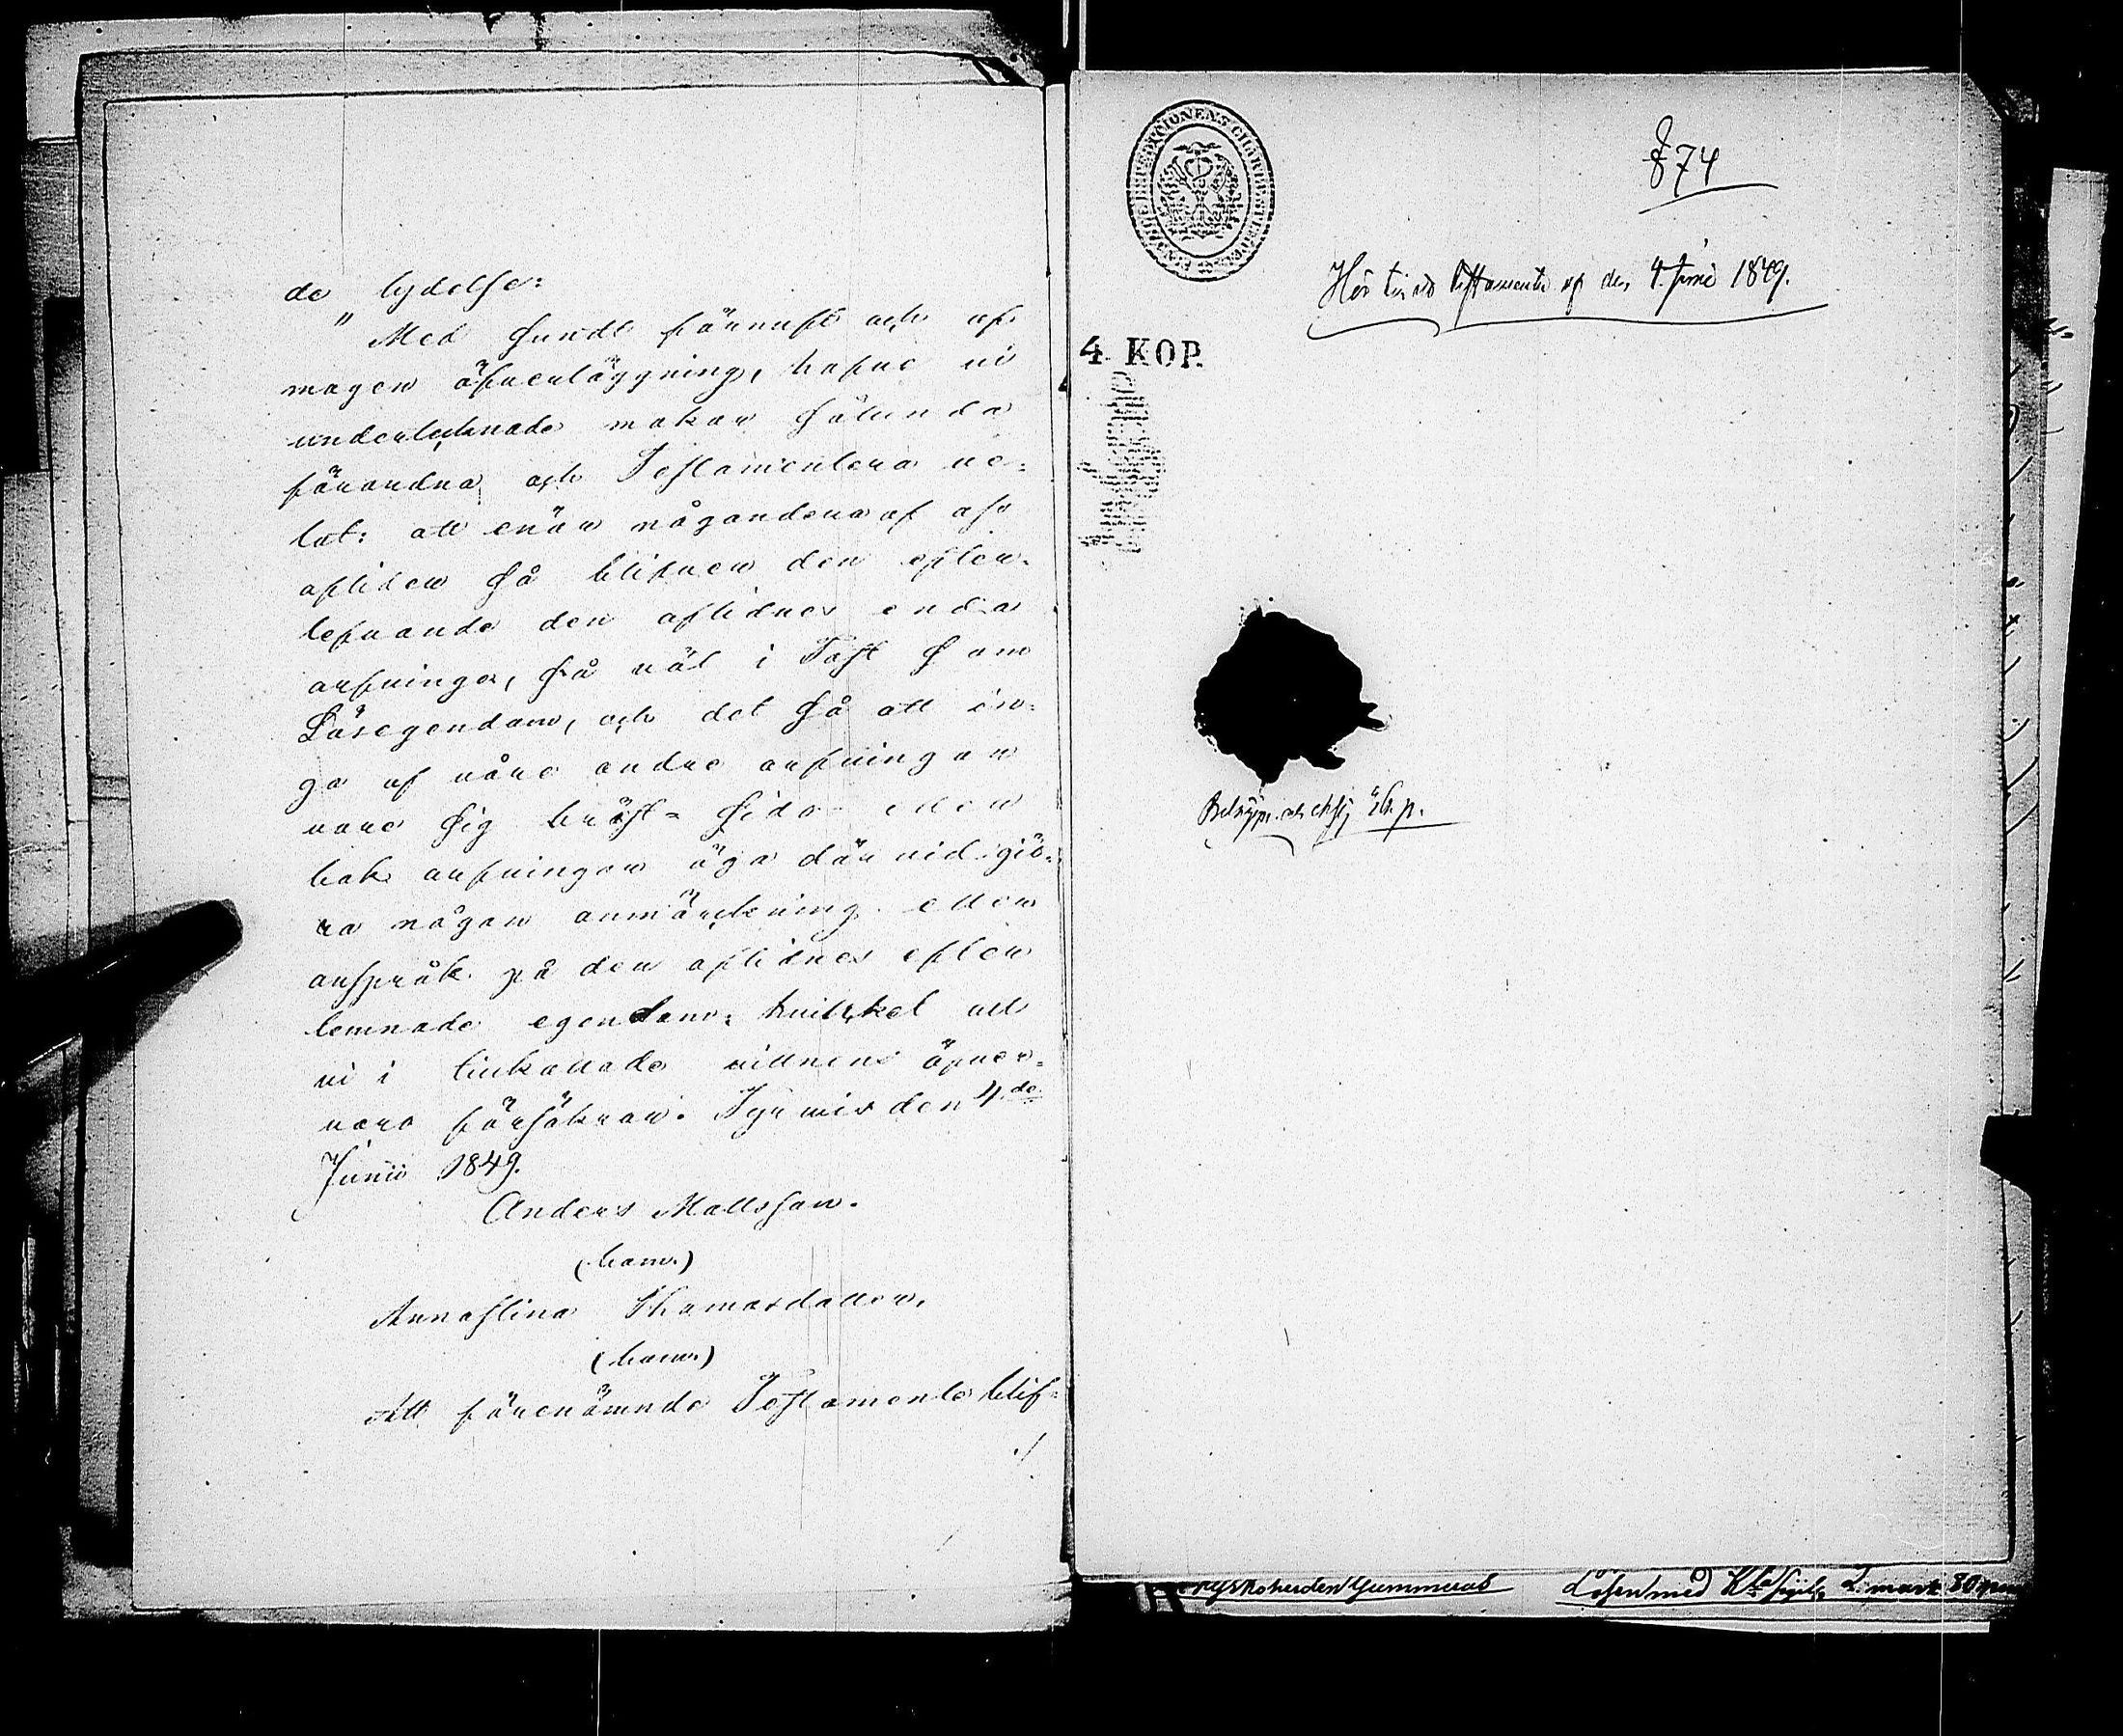 de lydelse:
"Med sundt förnuft och af
mogen öfverläggning, hafve vi
undertecknade makar sålunda
förordna och Testamentera ve-
lat: att enär någondera af oss
afliden så blifver den efter-
lefvande den aflidnes enda
arfvinge, så väl i Fast som
Lösegendom, och det så att in-
ga af våre andre arfvingar
vare sig bröst- sido- eller
bak arfvingar äga där vid giö-
ra någon anmärckning eller
anspråk på den aflidnes efter
lemnade egendom; hvilcket allt
vi i tillkallade vittnens öfver-
varo försäkrar. Tyrvis den 4.de
Junii 1849.
Anders Mattsson.
(bom.)
Annastina Thomasdotter.
(bom.)
Att förenämnde Testamente blif-
./.
874
Hör till Testamente af den 4. Juni 1849.
4 KOP.
Gummerus
Lösen med 2 mark 80